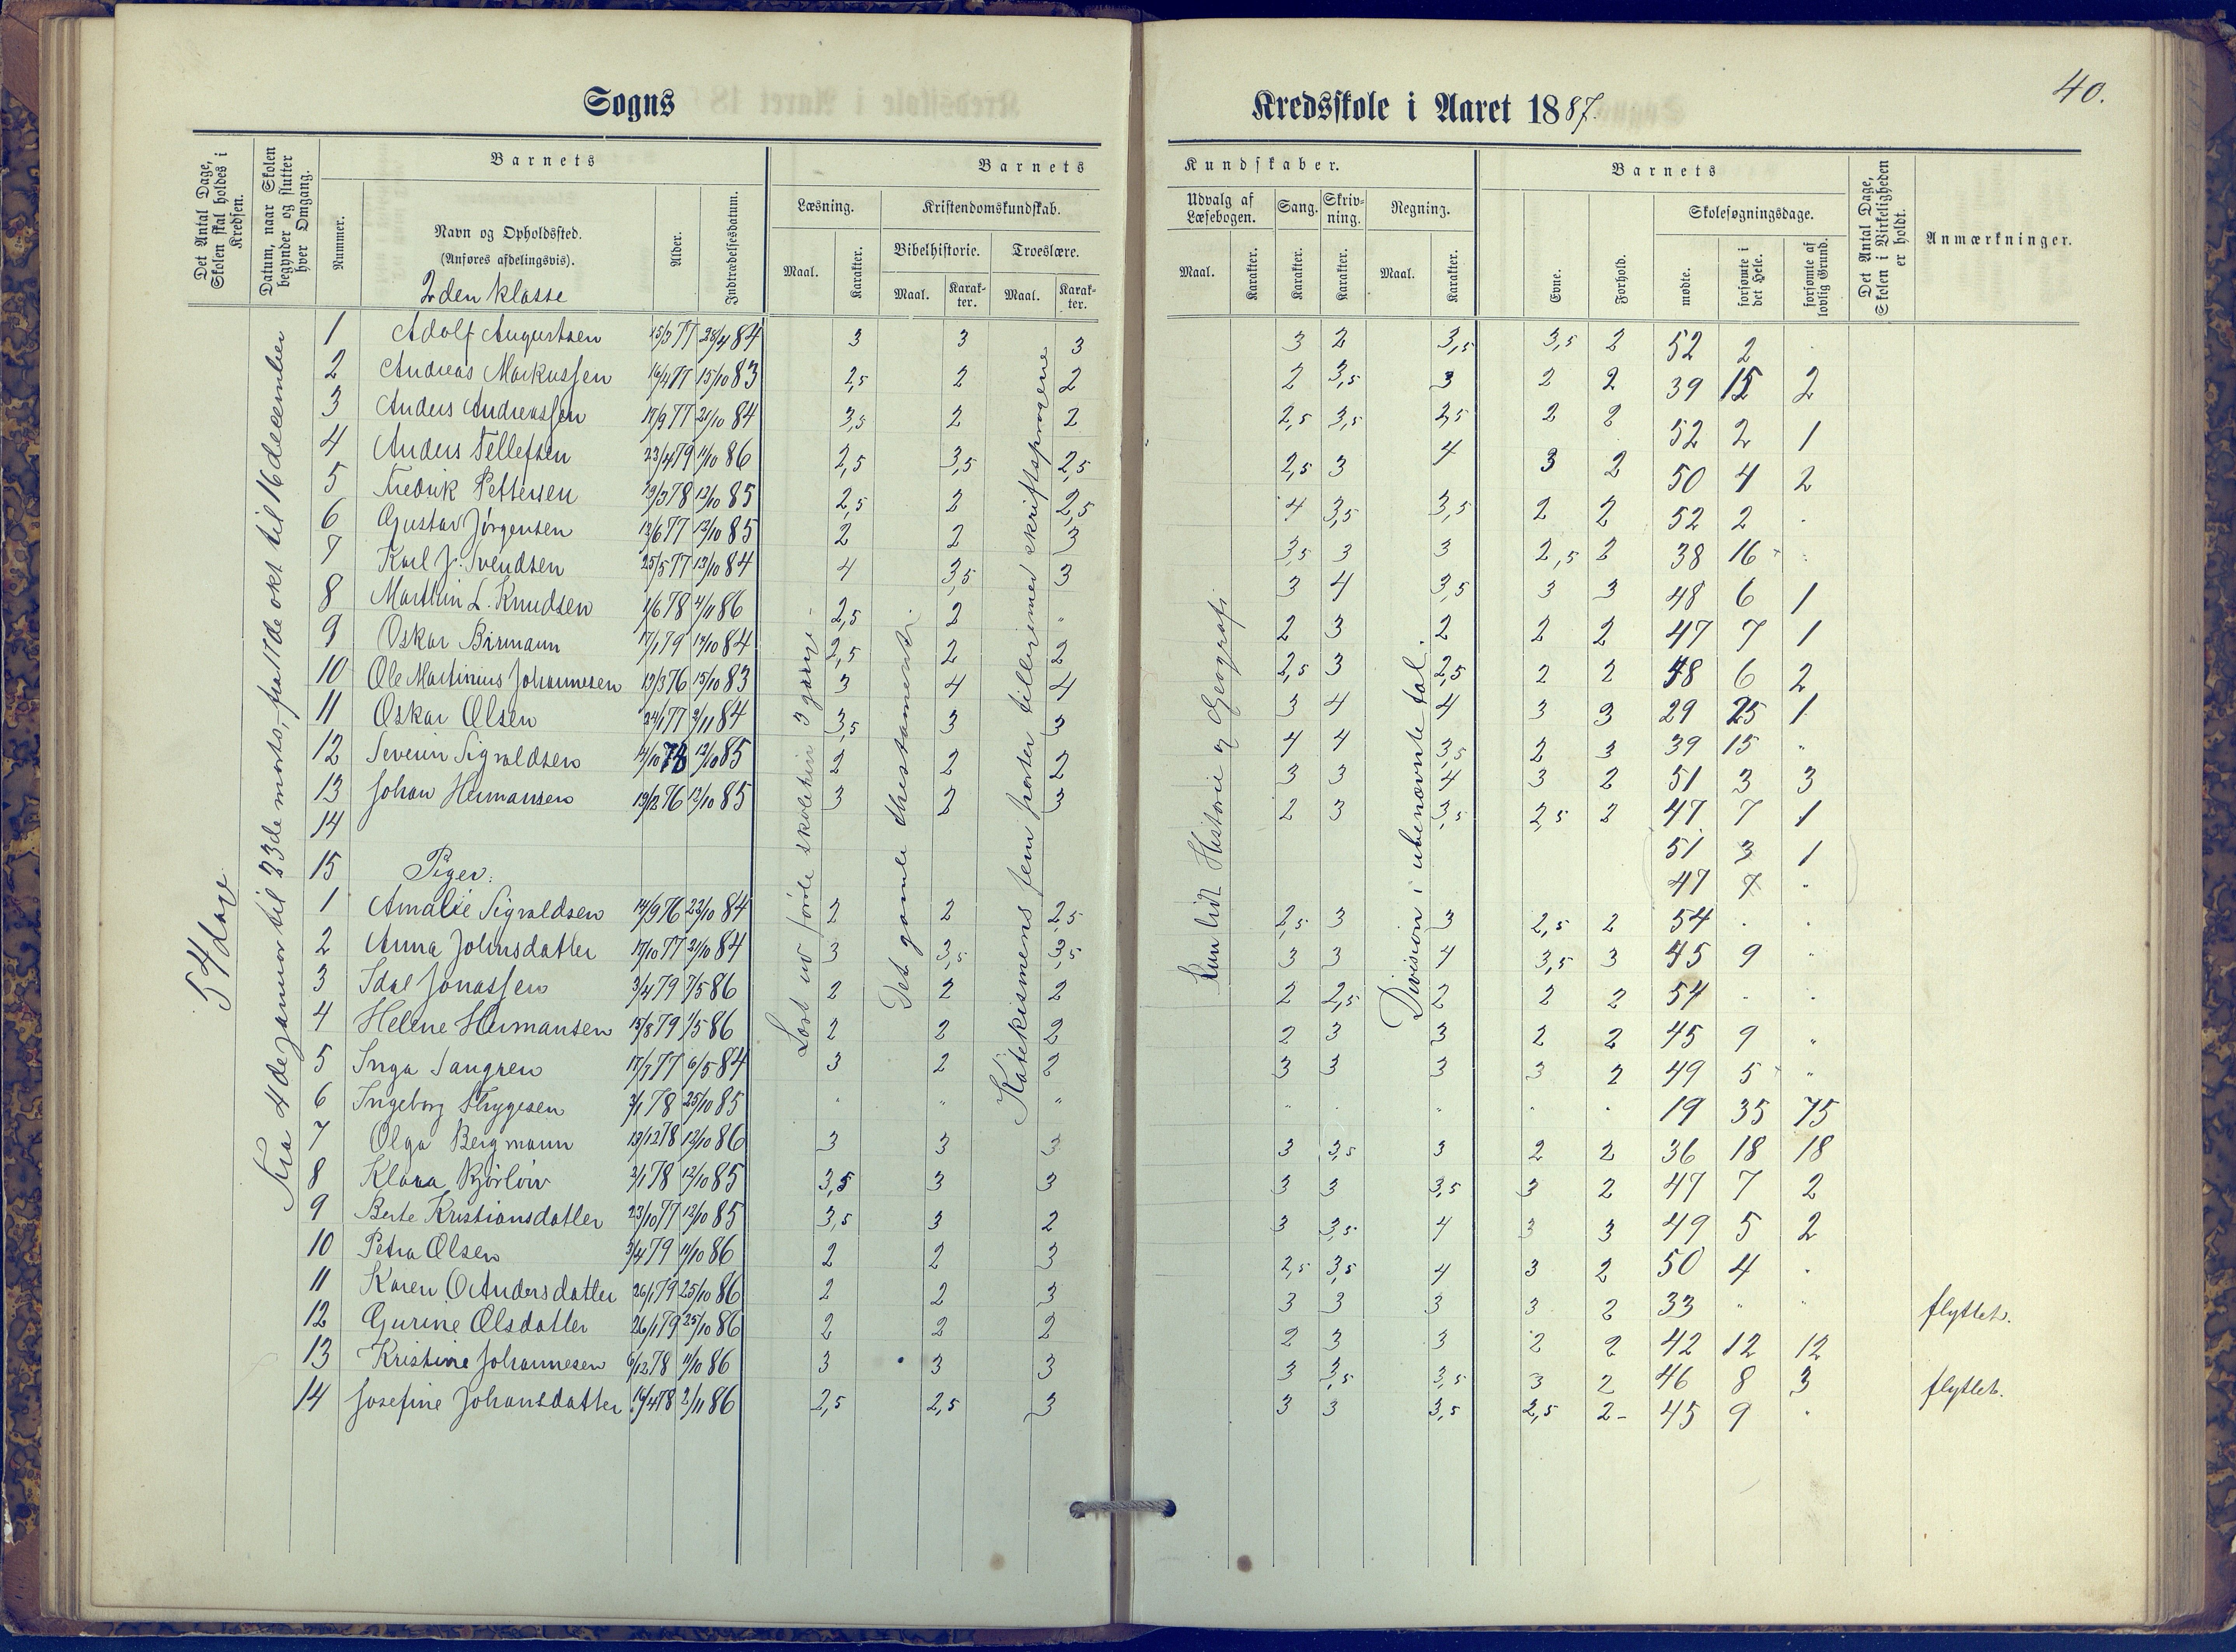 40.
Sogns Kredsskole i Aaret 1887.
Det Antal Dage, Skolen skal holdes i Kredsen.
Datum, naar Skolen begynder og slutter hver Omgang.
Barnets
Nummer.
Navn og Opholdssted.
(Anføres afdelingsvis).
2den klasse
Alder.
Indtrædelsesdatum.
Barnets Kundskaber.
Læsning.
Maal.
Karakter.
Kristendomskundskab.
Bibelhistorie.
Maal.
Karakter.
Troeslære.
Maal.
Karakter.
Udvalg af Læsebogen.
Maal.
Karakter.
Sang.
Karakter.
Skrivning.
Karakter.
Regning.
Maal.
Karakter.
Barnets
Evne.
Forhold.
Skolesøgningsdage.
mødte.
forsømte i det Hele.
forsømte af lovlig Grund.
Det Antal Dage, Skolen i Virkeligheden er holdt.
Anmærkninger.
54 dage
Fra 4de januar til 23de marts, fra 17de okt til 16 december
Læst ud første skoletrin 3 gange
Det gamle thestamente
Katekismens fem parter tilligemed skriftsprogene
Kun lidt Historie og Geografi
Division i ubenævnte tal.
1 Adolf Augustsen 15/3 77 28/4 84 3 3 3 3 2 3,5 3,5 2 52 2 .
2 Andreas Markussen 16/4 77 15/10 83 2,5 2 2 2 3,5 3 2 2 39 15 2
3 Anders Andreassen 17/9 77 21/10 84 3,5 2 2 2,5 3,5 3,5 2 2 52 2 1
4 Anders Tellefsen 23/4 79 11/10 86 2,5 3,5 2,5 2,5 3 4 3 2 50 4 2
5 Fredrik Pettersen 19/3 78 12/10 85 2,5 2 2,5 4 3,5 3,5 2 2 52 2 .
6 Gustav Jørgensen 12/6 77 12/10 85 2 2 3 3,5 3 3 2,5 2 38 16 .
7 Karl J. Svendsen 25/5 77 13/10 84 4 3,5 3 3 4 3,5 3 3 48 6 1
8 Marthin L. Knudsen 1/6 78 4/11 86 2,5 2 " 2 3 2 2 2 47 7 1
9 Oskar Birmann 17/1 79 13/10 84 2,5 2 2 2,5 3 2,5 2 2 48 6 2
10 Ole Martinius Johannesen 13/3 76 15/10 83 3 4 4 3 4 4 3 3 29 25 1
11 Oskar Olsen 24/1 77 3/11 84 3,5 3 3 4 4 3,5 2 3 39 15 "
12 Severin Sigvaldsen 12/10 85 2 2 2 3 3 4 3 2 51 3 3
13 Johan Hermansen 19/12 76 12/10 85 3 2 3 2 3 3,5 2,5 2 47 7 1
14 51 3 1
15 Piger: 47 7 "
1 Amalie Sigvaldsen 14/9 76 23/10 84 2 2 2,5 2,5 3 3 2,5 2 54 . .
2 Anna Johnsdatter 17/10 77 21/10 84 3 3,5 3,5 3 3 4 3,5 3 45 9 "
3 Idal Jonassen 3/4 79 7/5 86 2 2 2 2 2,5 2 2 2 54 . .
4 Helene Hermansen 15/8 79 1/5 86 2 2 2 2 3 3 2 2 45 9 "
5 Inga Tangren 17/7 77 6/5 84 3 2 2 3 3 3 3 2 49 5 "
6 Ingeborg Thygesen 3/1 78 25/10 85 " " " " . " . . 19 35 75
7 Olga Bergmann 13/12 78 12/10 86 3 3 3 3 3,5 3 2 2 36 18 18
8 Klara Bjørløw 2/1 78 12/10 85 3,5 3 3 3 3 3,5 3 2 47 7 2
9 Berte Kristiansdatter 23/10 77 12/10 85 3,5 3 2 3 3,5 4 3 3 49 5 2
10 Petra Olsen 3/4 79 11/10 86 2 2 3 2,5 3,5 4 3 2 50 4 .
11 Karen O Andersdatter 26/1 79 25/10 86 2 2 3 3 3 3 3 2 33 " " flyttet.
12 Gurine Olsdatter 26/1 79 25/10 86 2 2 2 2 3 3 2 2 42 12 12
13 Kristine Johannesen 6/12 78 11/10 86 3 3 3 3 3,5 3,5 3 2 46 8 3 flyttet.
14 Josefine Johansdatter 16/4 78 2/11 86 2,5 2,5 3 3 3 3,5 2,5 2 45 9 .